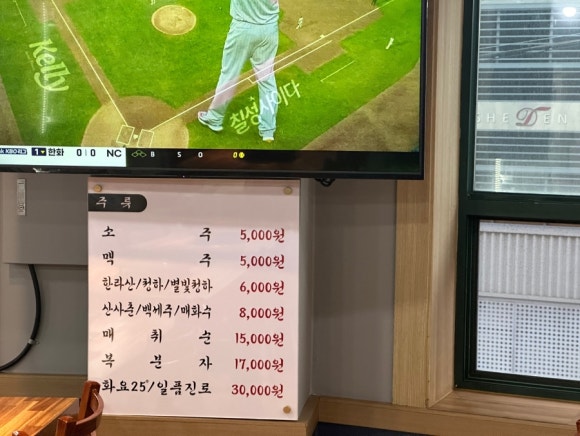 Kelly
칠성사이다
KBO리그 1 한화 0 0 NC B S O
주 류
소 주 5,000원
맥 주 5,000원
한라산/청하/별빛청하 6,000원
산사춘/백세주/매화수 8,000원
매 취 순 15,000원
복 분 자 17,000원
화요25°/일품진로 30,000원
GHEDEN